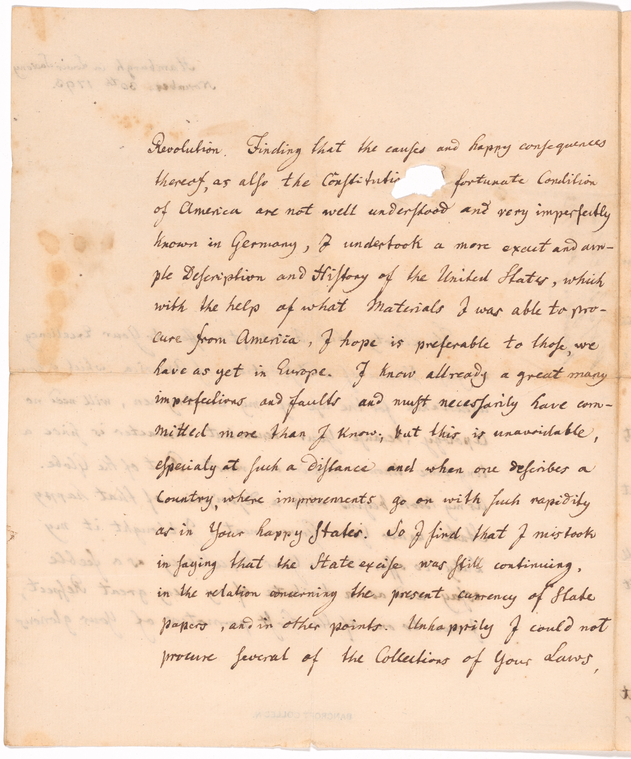 Revolution. Finding that the causes and happy consequences
thereof, as also the Constitutio fortunate Condition
of America are not well understood and very imperfectly
known in Germany, I undertook a more exact and am-
ple Description and History of the United States, which
with the help of what Materials I was able to pro-
cure from America, I hope is preferable to those, we
have as yet in Europe. I know allready a great many
imperfections and faults and must necessarily have com-
mitted more than I know; but this is unavoidable,
especialy at such a distance and when one describes a
Country, where improvements go on with such rapidity
as in Your happy States. So I find that I mistook
in saying that the State excise was still continuing,
in the relation concerning the present currency of State
papers, and in other points. Unhappily I could not
procure several of the Collections of Your Laws,